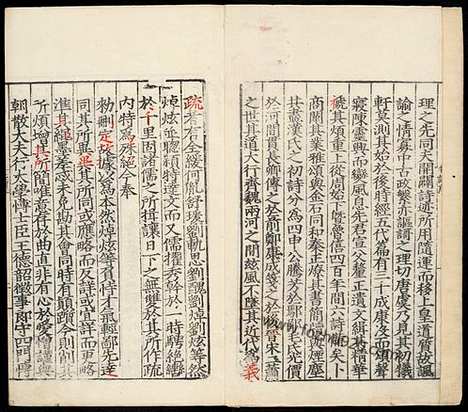 理之先同夫開闢詩迹所用隨運而移上皇道質故諷
諭之情寡中古政繁亦謳謌之理切唐虞乃見其初犧
軒莫測其始於後時經五代篇有三千成康沒而頌聲
寢陳靈興而變風息先君宣父釐正遺文緝其精華
褫其煩重上從周始下暨魯僖四百年間六詩備矣卜
商闡其業雅頌與金石同和秦正燎其書簡牘與煙塵
共盡漢氏之初詩分為四申公騰芳於鄢郢毛氏光價
於河間貫長卿傳之於前鄭康成箋之於後晉宋二蕭
之世其道大行齊魏兩河之間茲風不墜其近代為義
疏者有全緩何胤舒瑗劉軌思劉醜劉焯劉炫等然
焯炫並聰穎特達文而又儒擢秀幹於一時騁絕轡
於千里固諸儒之所揖讓日下之無雙於其所作疏
內特為殊絕今奉
勑刪定故據以為本然焯炫等負恃才氣輕鄙先達
同其所異異其所同或應略而反詳或宜詳而更略
準其繩墨差忒未免勘其會同時有顛躓今則削其
所煩增其所簡唯意存於曲直非有心於愛憎謹與
朝散大夫行太學博士臣王德韶徵事郎守四門博